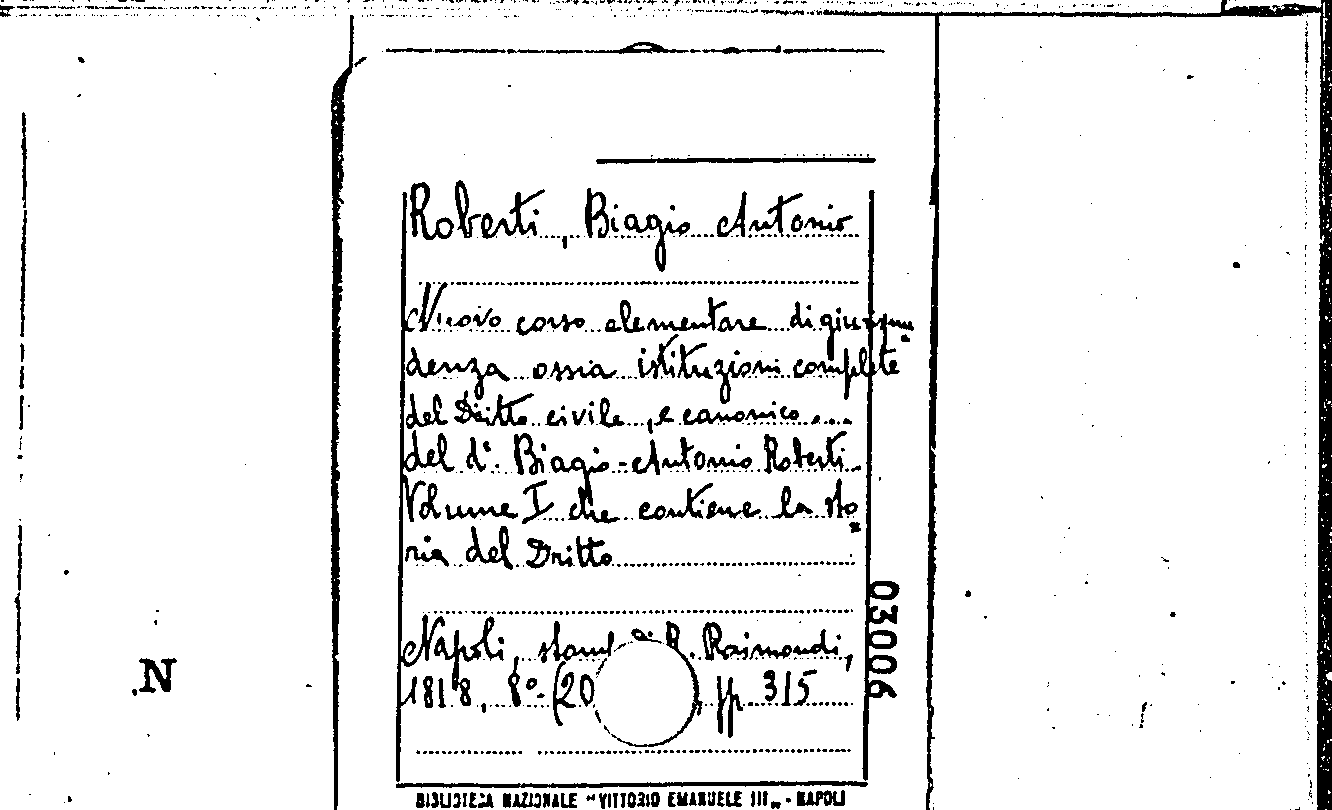 Roberti, Biagio Antonio
Nuovo corso elementare di giurispru=
denza ossia istituzioni complete
del Diritto civile, e canonico....
del dr. Biagio-Antonio Roberti.
Volume I che contiene la sto=
ria del Dritto
Napoli, stamp. di R. Raimondi,
1818, 8°-(20 , pp. 315
03006
N
BIBLIOTECA NAZIONALE "VITTORIO EMANUELE III„ - NAPOLI